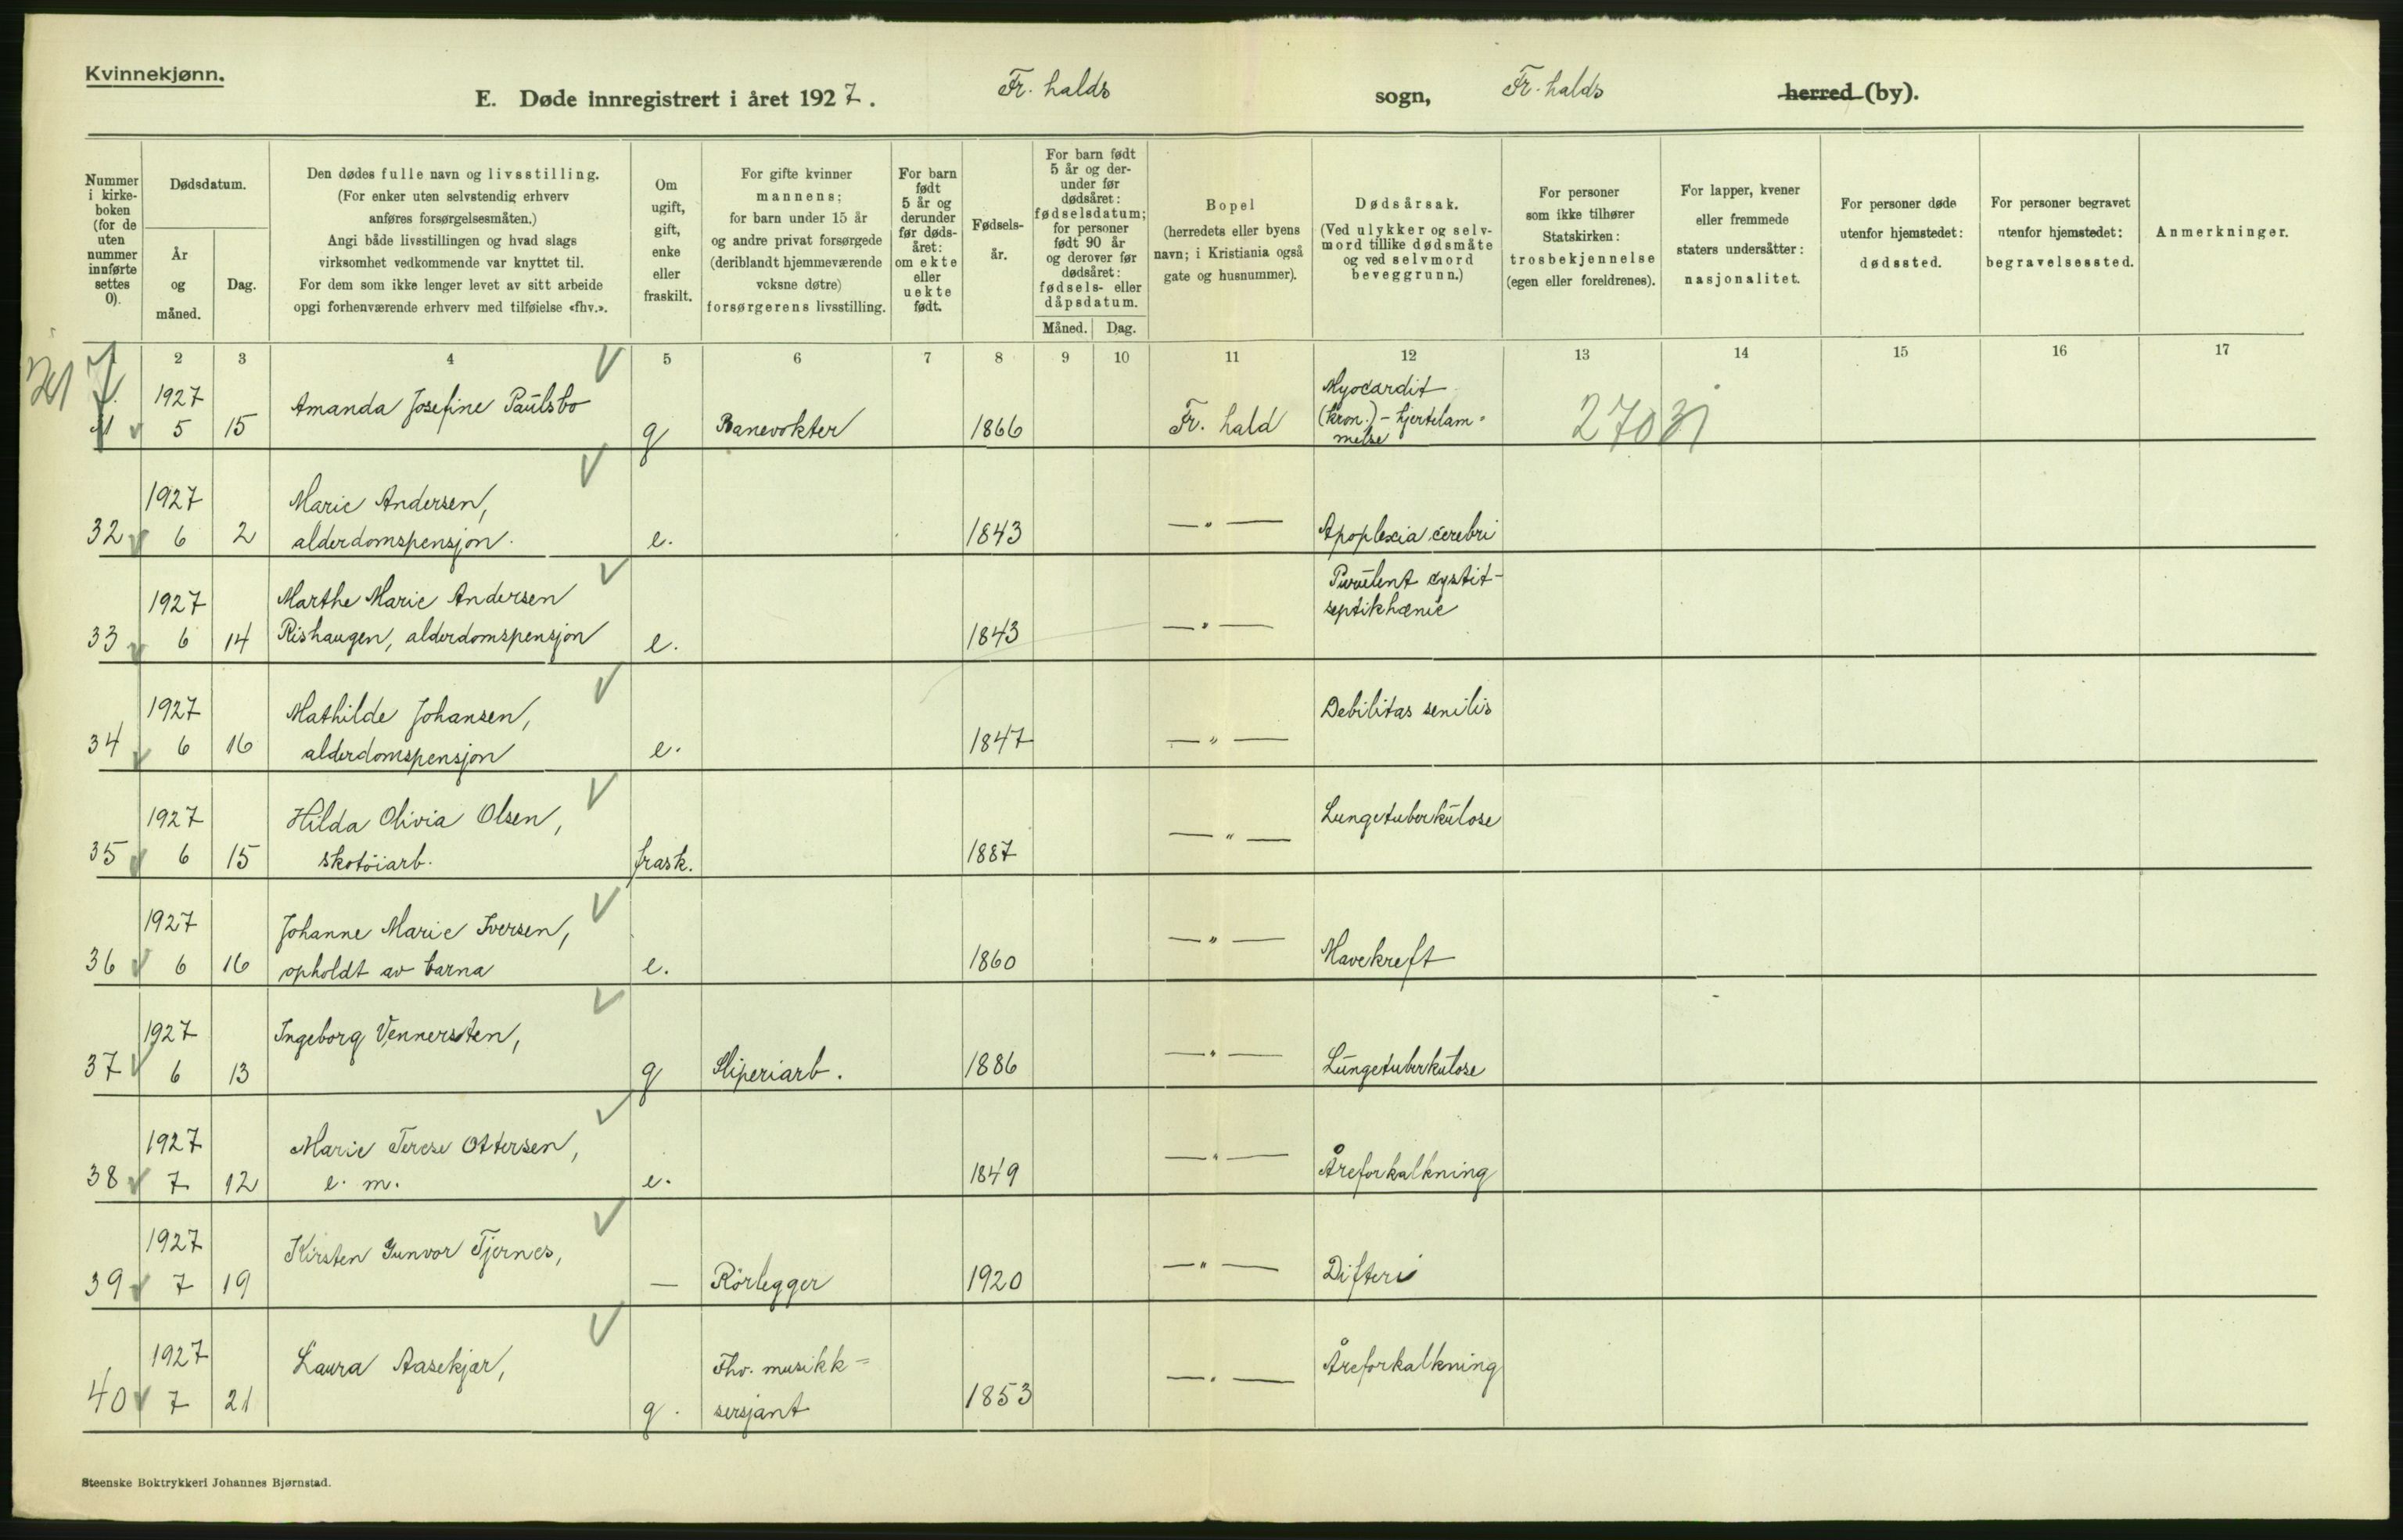 Kvinnekjønn.
E. Døde innregistrert i året 1927. Fr. halds sogn, Fr. halds herred (by).
Nummer i kirke- boken (for de uten nummer innførte settes 0).
Dødsdatum.
År og måned.
Dag.
Den dødes fulle navn og livsstilling.
(For enker uten selvstendig erhverv
anføres forsørgelsesmåten.)
Angi både livsstillingen og hvad slags
virksomhet vedkommende var knyttet til.
For dem som ikke lenger levet av sitt arbeide
opgi forhenværende erhverv med tilføielse «fhv.».
Om ugift, gift, enke eller fraskilt.
For gifte kvinner
mannens;
for barn under 15 år
og andre privat forsørgede
(deriblandt hjemmeværende
voksne døtre)
forsørgerens livsstilling.
For barn født 5 år og derunder før døds- året: om ekte eller uekte født.
Fødsels- år.
For barn født 5 år og der- under før dødsåret: fødselsdatum; for personer født 90 år og derover før dødsåret: fødsels- eller dåpsdatum.
Måned. Dag.
Bopel
(herredets eller byens
navn; i Kristiania også
gate og husnummer).
Dødsårsak.
(Ved ulykker og selv-
mord tillike dødsmåte
og ved selvmord
beveggrunn.)
For personer
som ikke tilhører
Statskirken:
trosbekjennelse
(egen eller foreldrenes).
For lapper, kvener
eller fremmede
staters undersåtter:
nasjonalitet.
For personer døde
utenfor hjemstedet:
dødssted.
For personer begravet
utenfor hjemstedet:
begravelsessted.
Anmerkninger.
2 3 4 5 6 7 8 9 10 11 12 13 14 15 16 17
1927 Amanda Josefine Paulsbo Myocardit
5 15 g Banevokter 1866 Fr. hald (kron.) - hjertelam-
melse
1927 Marie Andersen,
32 6 2 alderdomspensjon. e. 1843 — " — Apoplexia cerebri
1927 Marthe Marie Andersen Purulent cystit-
33 6 14 Rishaugen, alderdomspensjon e. 1843 — " — septikhænie
1927 Mathilde Johansen, Debilitas senilis
34 6 16 alderdomspensjon e. 1847 — " —
1927 Hilda Olivia Olsen, Lungetuberkulose
35 6 15 skotøiarb. frask. 1887 — " —
1927 Johanne Marie Iversen,
36 6 16 opholdt av barna e. 1860 — " — Mavekreft
1927 Ingeborg Vennersten,
37 6 13 g Sliperiarb. 1886 — " — Lungetuberkulose
1927 Marie Terese Ottersen,
38 7 12 e. m. e. 1849 — " — Åreforkalkning
1927 Kirsten Gunvor Tjernes,
39 7 19 — Rörlegger 1920 — " — Difteri
1927 Laura Aasekjær, Fhv. musikk= Åreforkalkning
40 7 21 g. sersjant 1853 — " —
Steenske Boktrykkeri Johannes Bjørnstad.